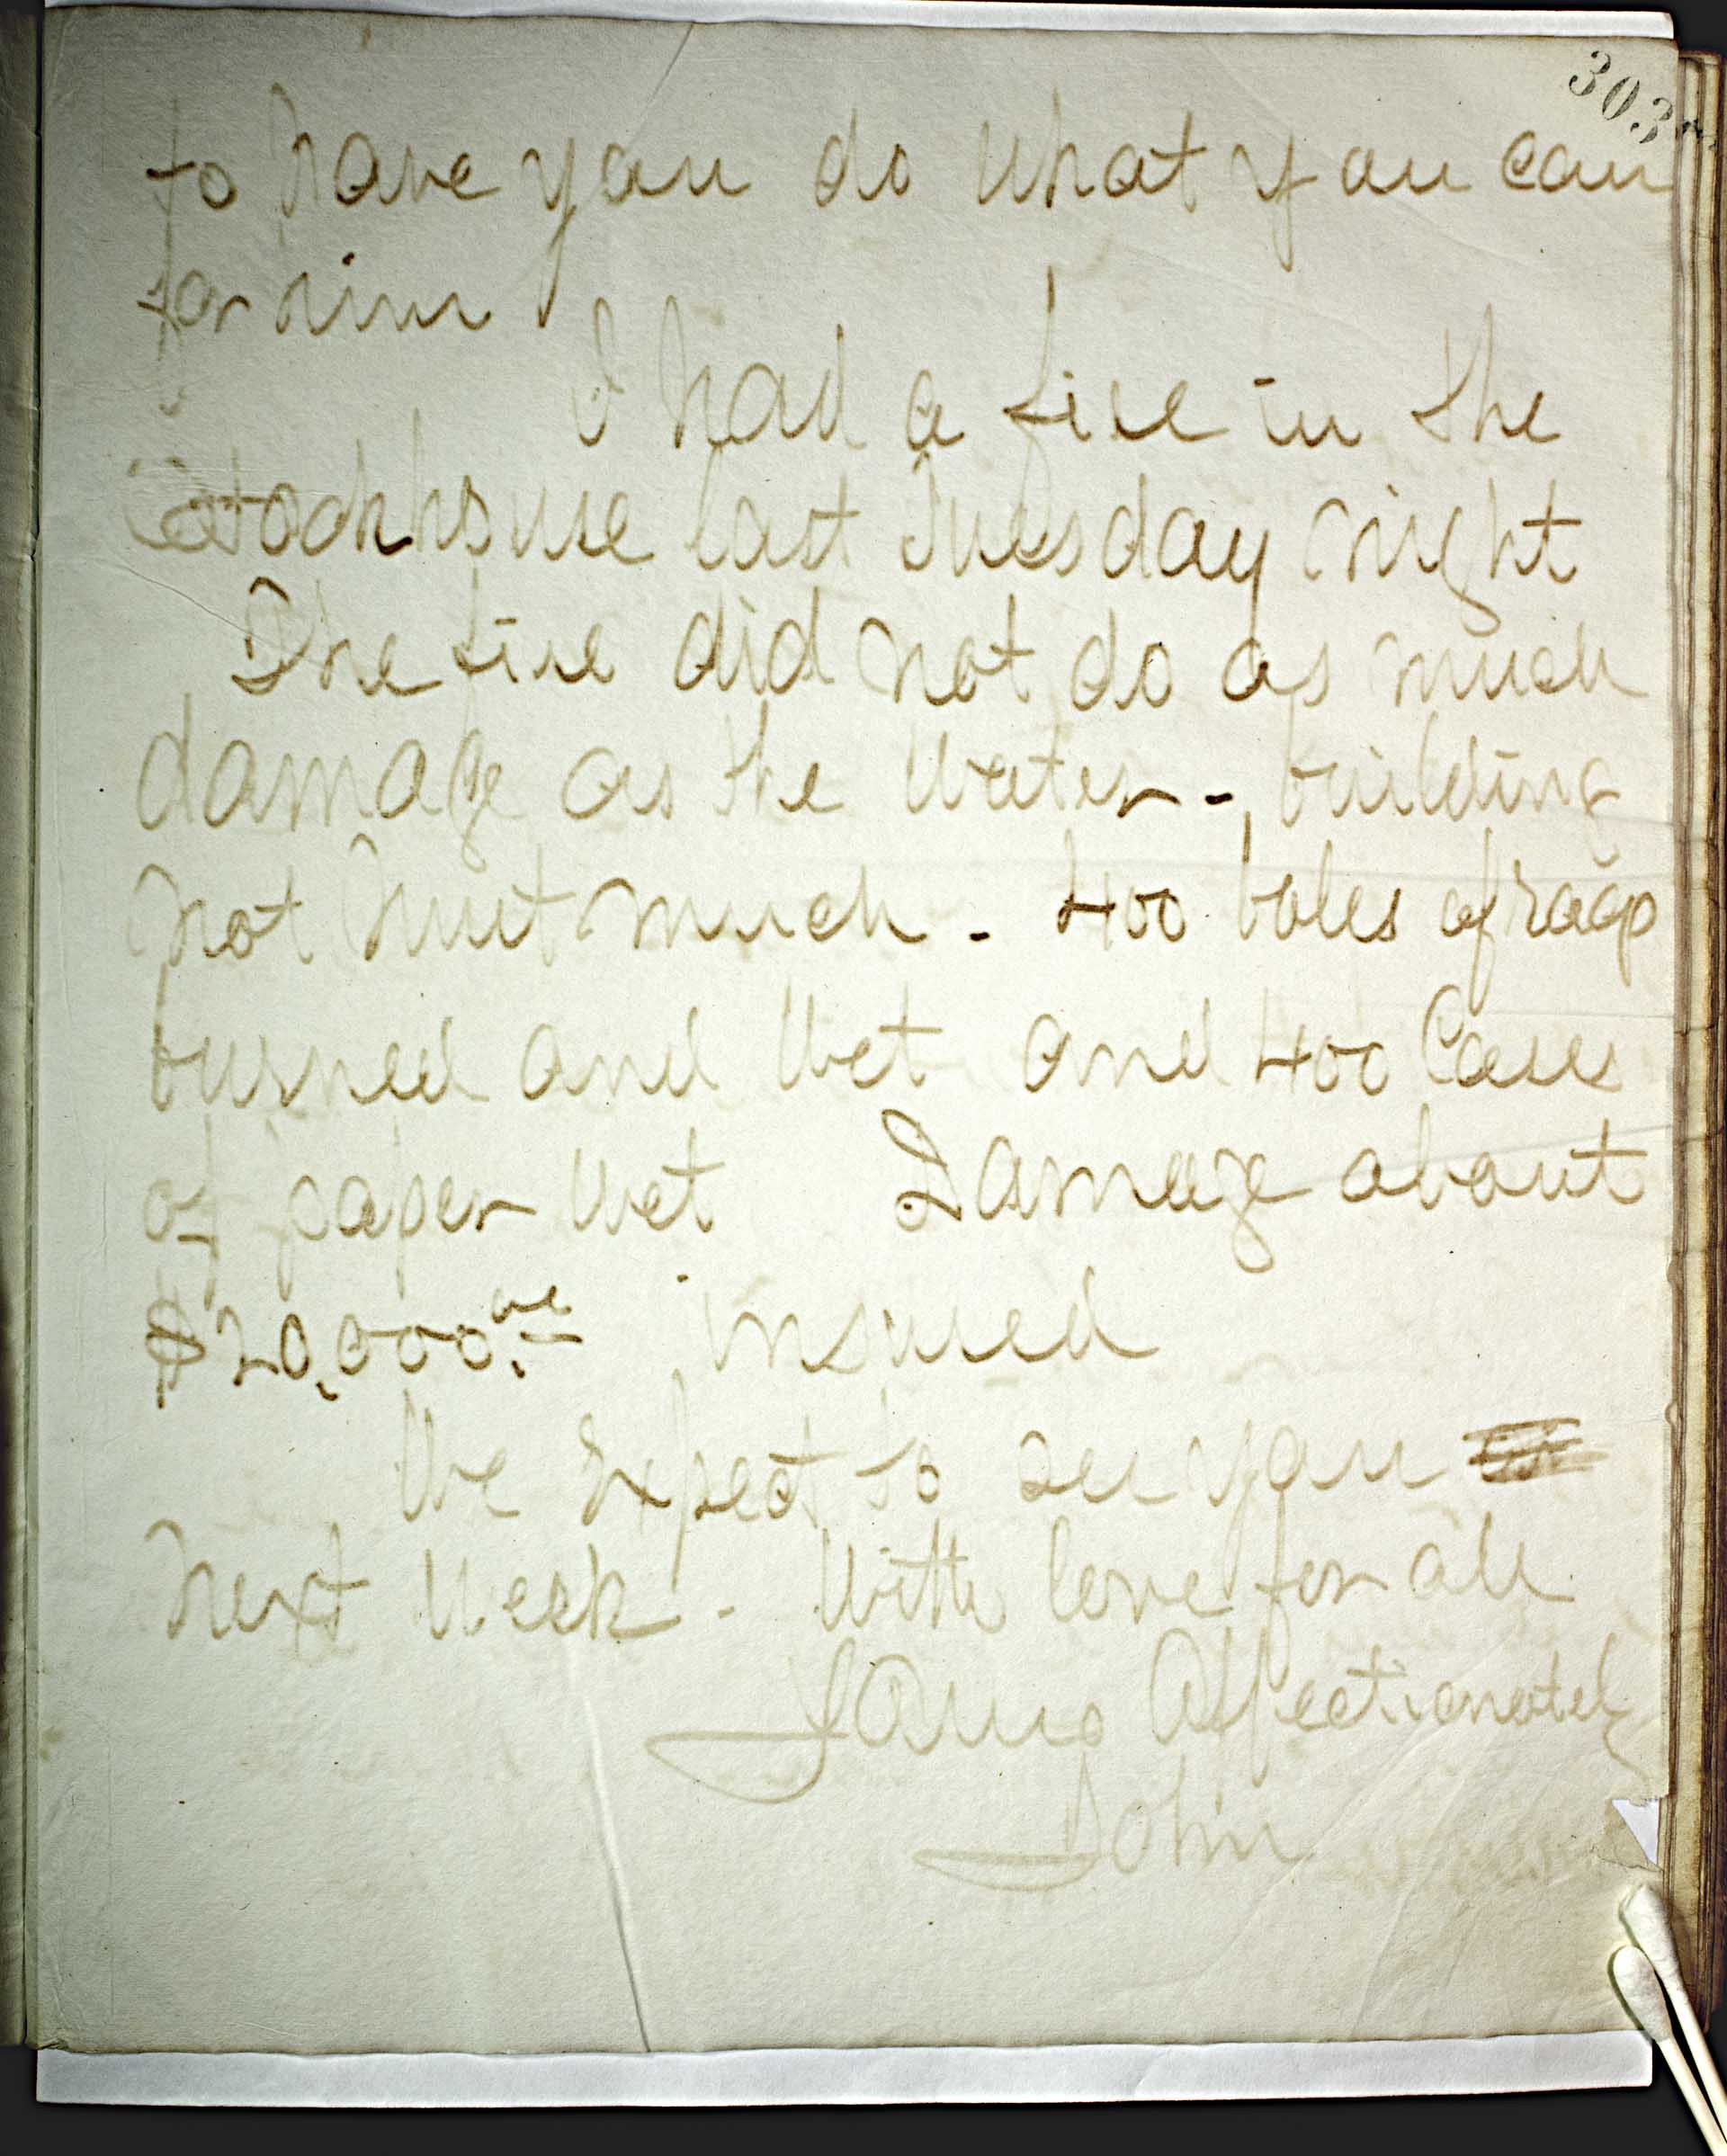 303
to have you do what you can
for him
I had a fire in the
Stockhouse last Tuesday night
The fire did not do as much
damage as the water -, building
not hurt much - 400 bales of rags
burned and wet and 400 Cases
of paper wet Damage about
$20,000.00 insured
We expect to see you
next week - With love for all
Yours Affectionately
John